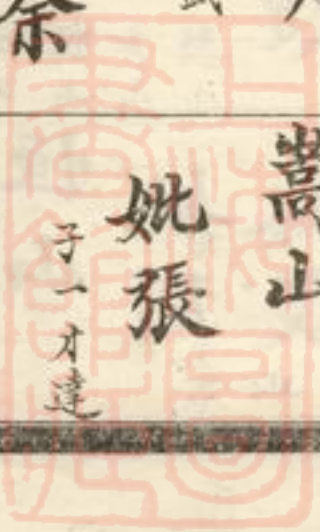 嵩山
妣張
子一才達